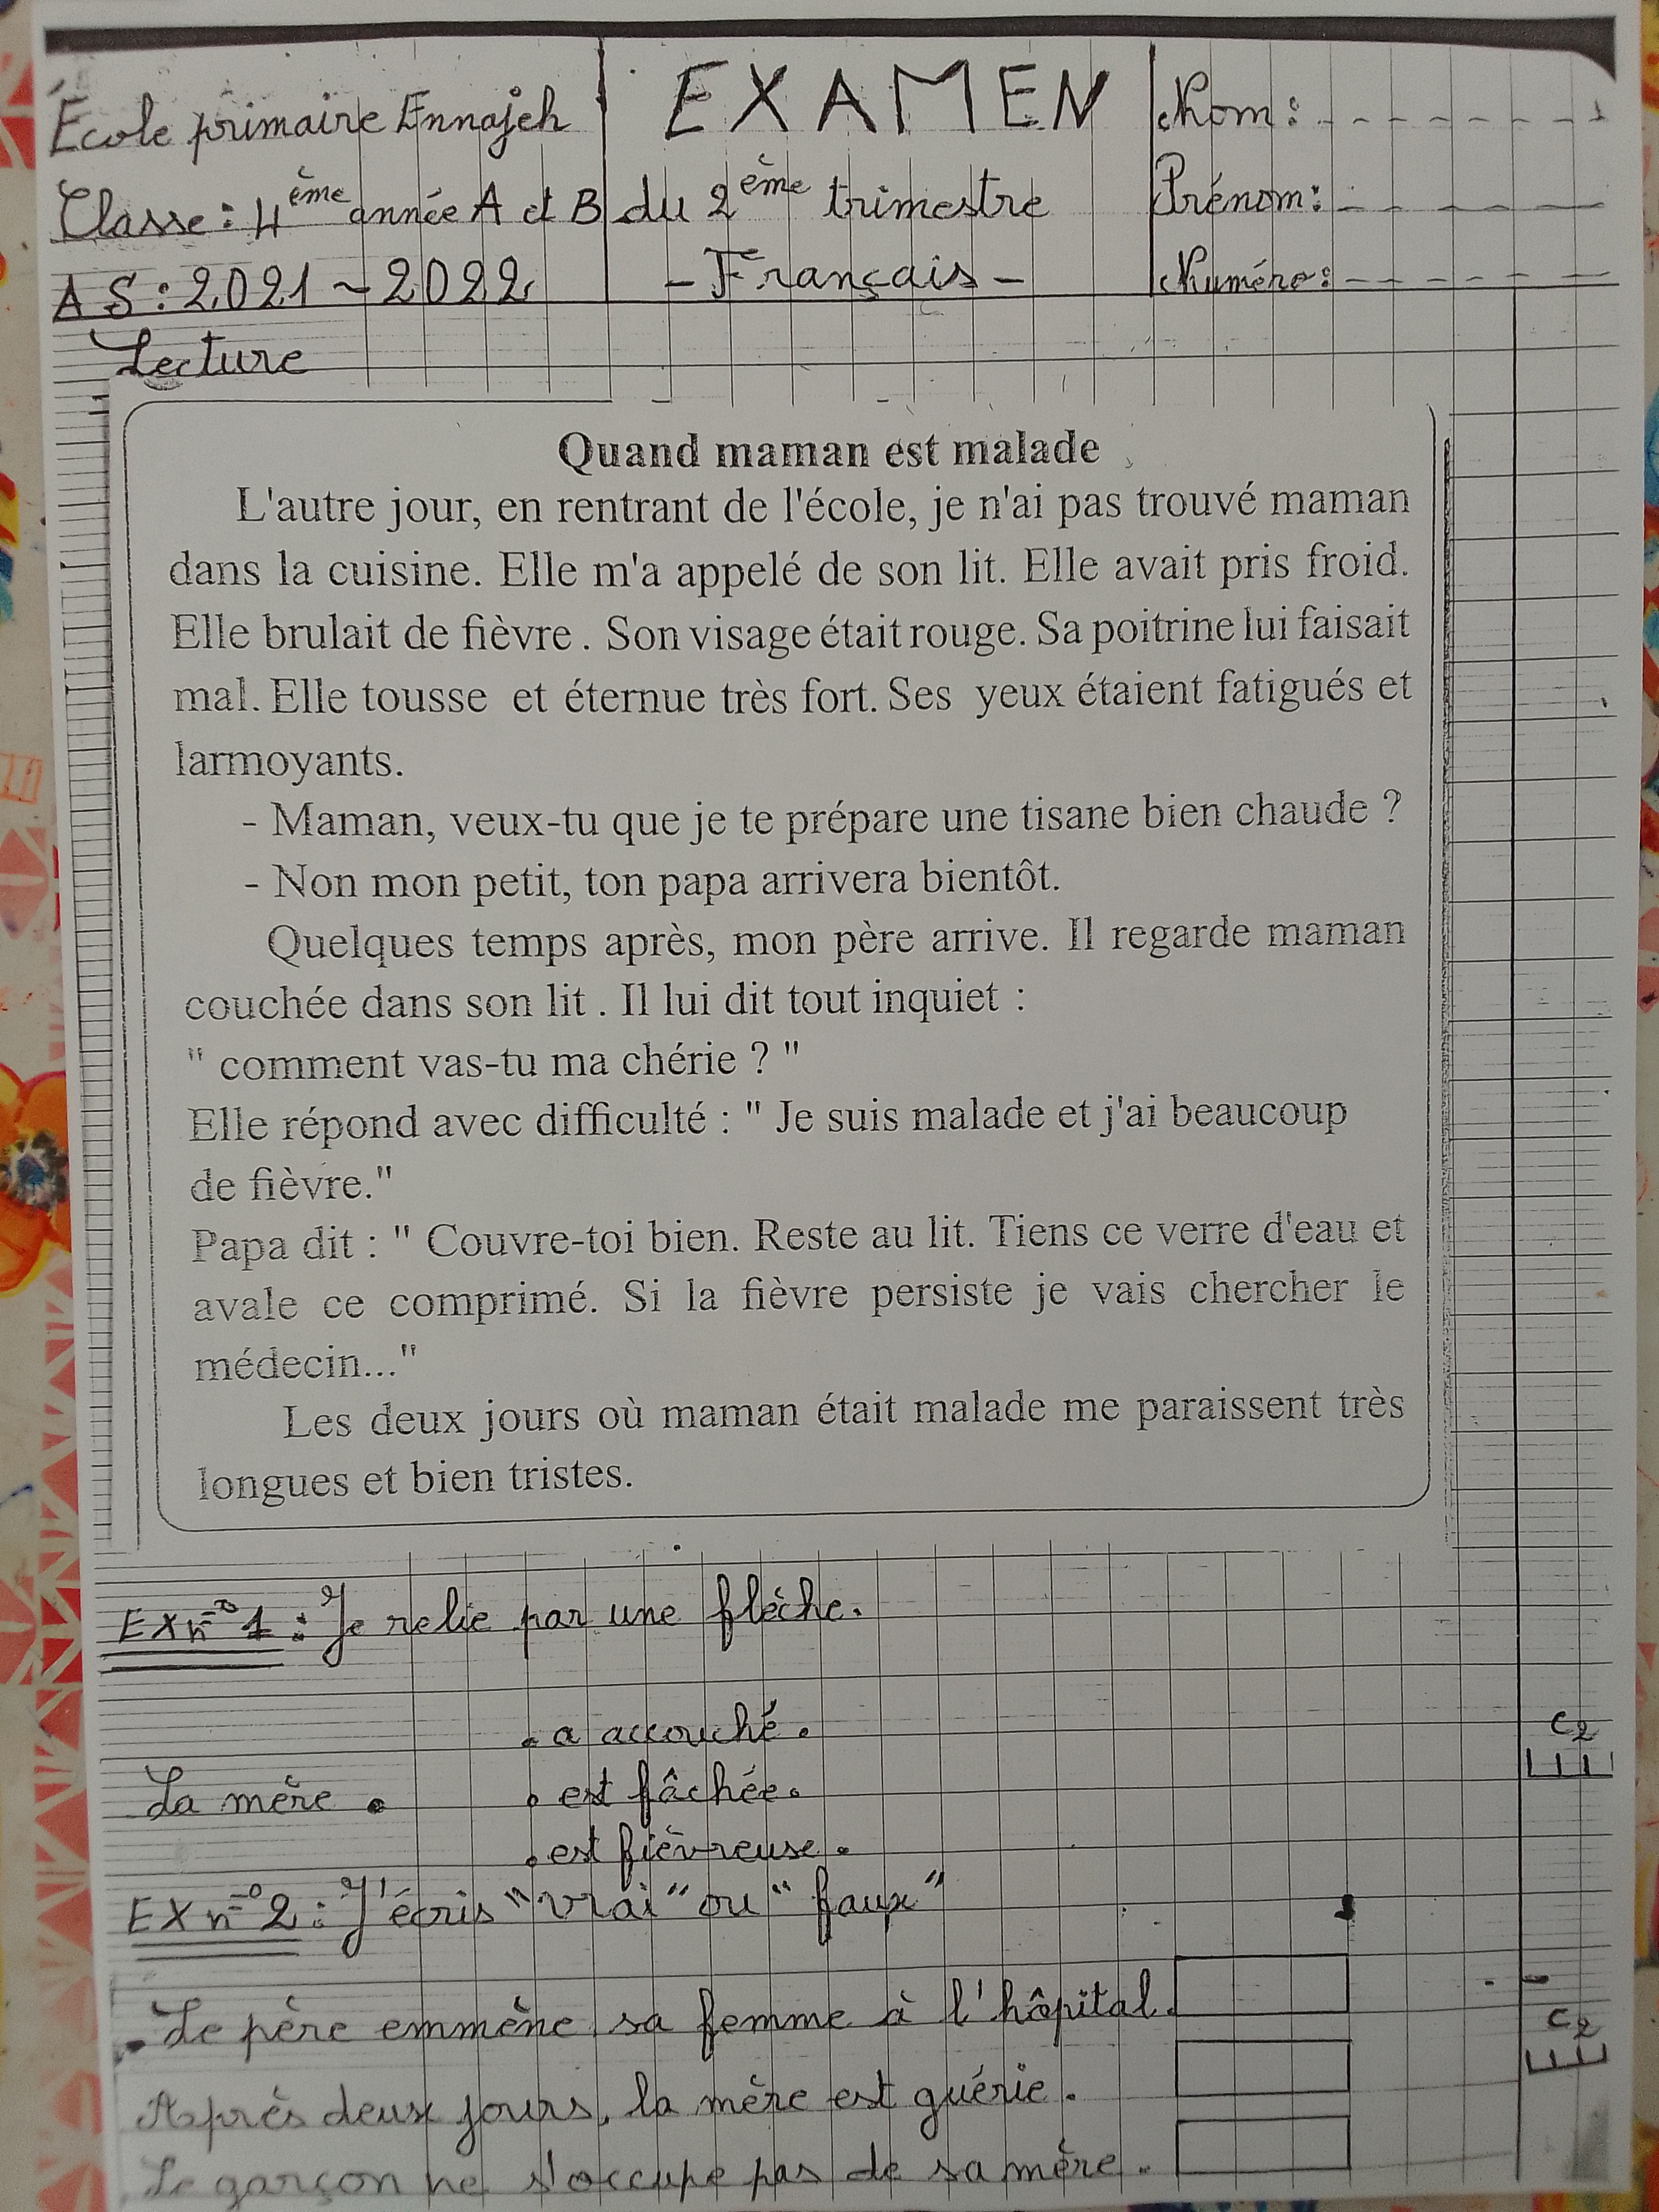 École primaire Ennajeh
EXAMEN
Nom:
Classe: 4ème année A et B
du 2ème trimestre
Prénom:
AS: 2021 ~ 2022
- Français -
Numéro:
Lecture
Quand maman est malade
L'autre jour, en rentrant de l'école, je n'ai pas trouvé maman
dans la cuisine. Elle m'a appelé de son lit. Elle avait pris froid.
Elle brulait de fièvre . Son visage était rouge. Sa poitrine lui faisait
mal. Elle tousse et éternue très fort. Ses yeux étaient fatigués et
larmoyants.
- Maman, veux-tu que je te prépare une tisane bien chaude ?
- Non mon petit, ton papa arrivera bientôt.
Quelques temps après, mon père arrive. Il regarde maman
couchée dans son lit . Il lui dit tout inquiet :
" comment vas-tu ma chérie ? "
Elle répond avec difficulté : " Je suis malade et j'ai beaucoup
de fièvre."
Papa dit : " Couvre-toi bien. Reste au lit. Tiens ce verre d'eau et
avale ce comprimé. Si la fièvre persiste je vais chercher le
médecin..."
Les deux jours où maman était malade me paraissent très
longues et bien tristes.
EX n° 1 : Je relie par une flèche.
. a accouché.
C2
La mère .
. est fâchée.
. est fièvreuse.
EX n° 2 : J'écris "vrai" ou "faux"
. Le père emmène sa femme à l'hôpital.
C2
Après deux jours, la mère est guérie.
. Le garçon ne s'occupe pas de sa mère.